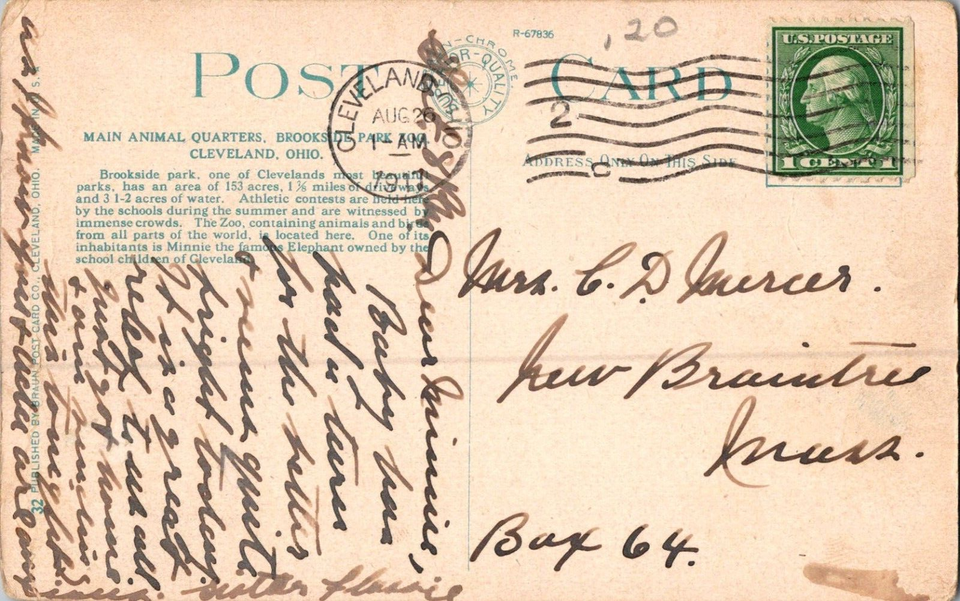 R-67836
,20
POST CARD
U.S.POSTAGE
1 CENT 1
CLEVELAND
AUG 26
1-AM
1911
2
C
MAIN ANIMAL QUARTERS, BROOKSIDE PARK ZOO,
CLEVELAND, OHIO.
Brookside park, one of Clevelands most beautiful
parks, has an area of 153 acres, 1 ⅞ miles of driveways
and 3 1-2 acres of water. Athletic contests are held here
by the schools during the summer and are witnessed by
immense crowds. The Zoo, containing animals and birds
from all parts of the world, is located here. One of its
inhabitants is Minnie the famous Elephant owned by the
school children of Cleveland.
ADDRESS ONLY ON THIS SIDE
QUALITY
32 PUBLISHED BY BRAUN POST CARD CO., CLEVELAND, OHIO. MADE IN U.S.A.
Mrs. C. D. Mercer.
New Braintree
Mass.
Box 64.
Dear Minnie,
Baby has
had a turn
for the better
& seems quite
bright today.
It is a great
relief to us all
Just got home
this
sister Flossie